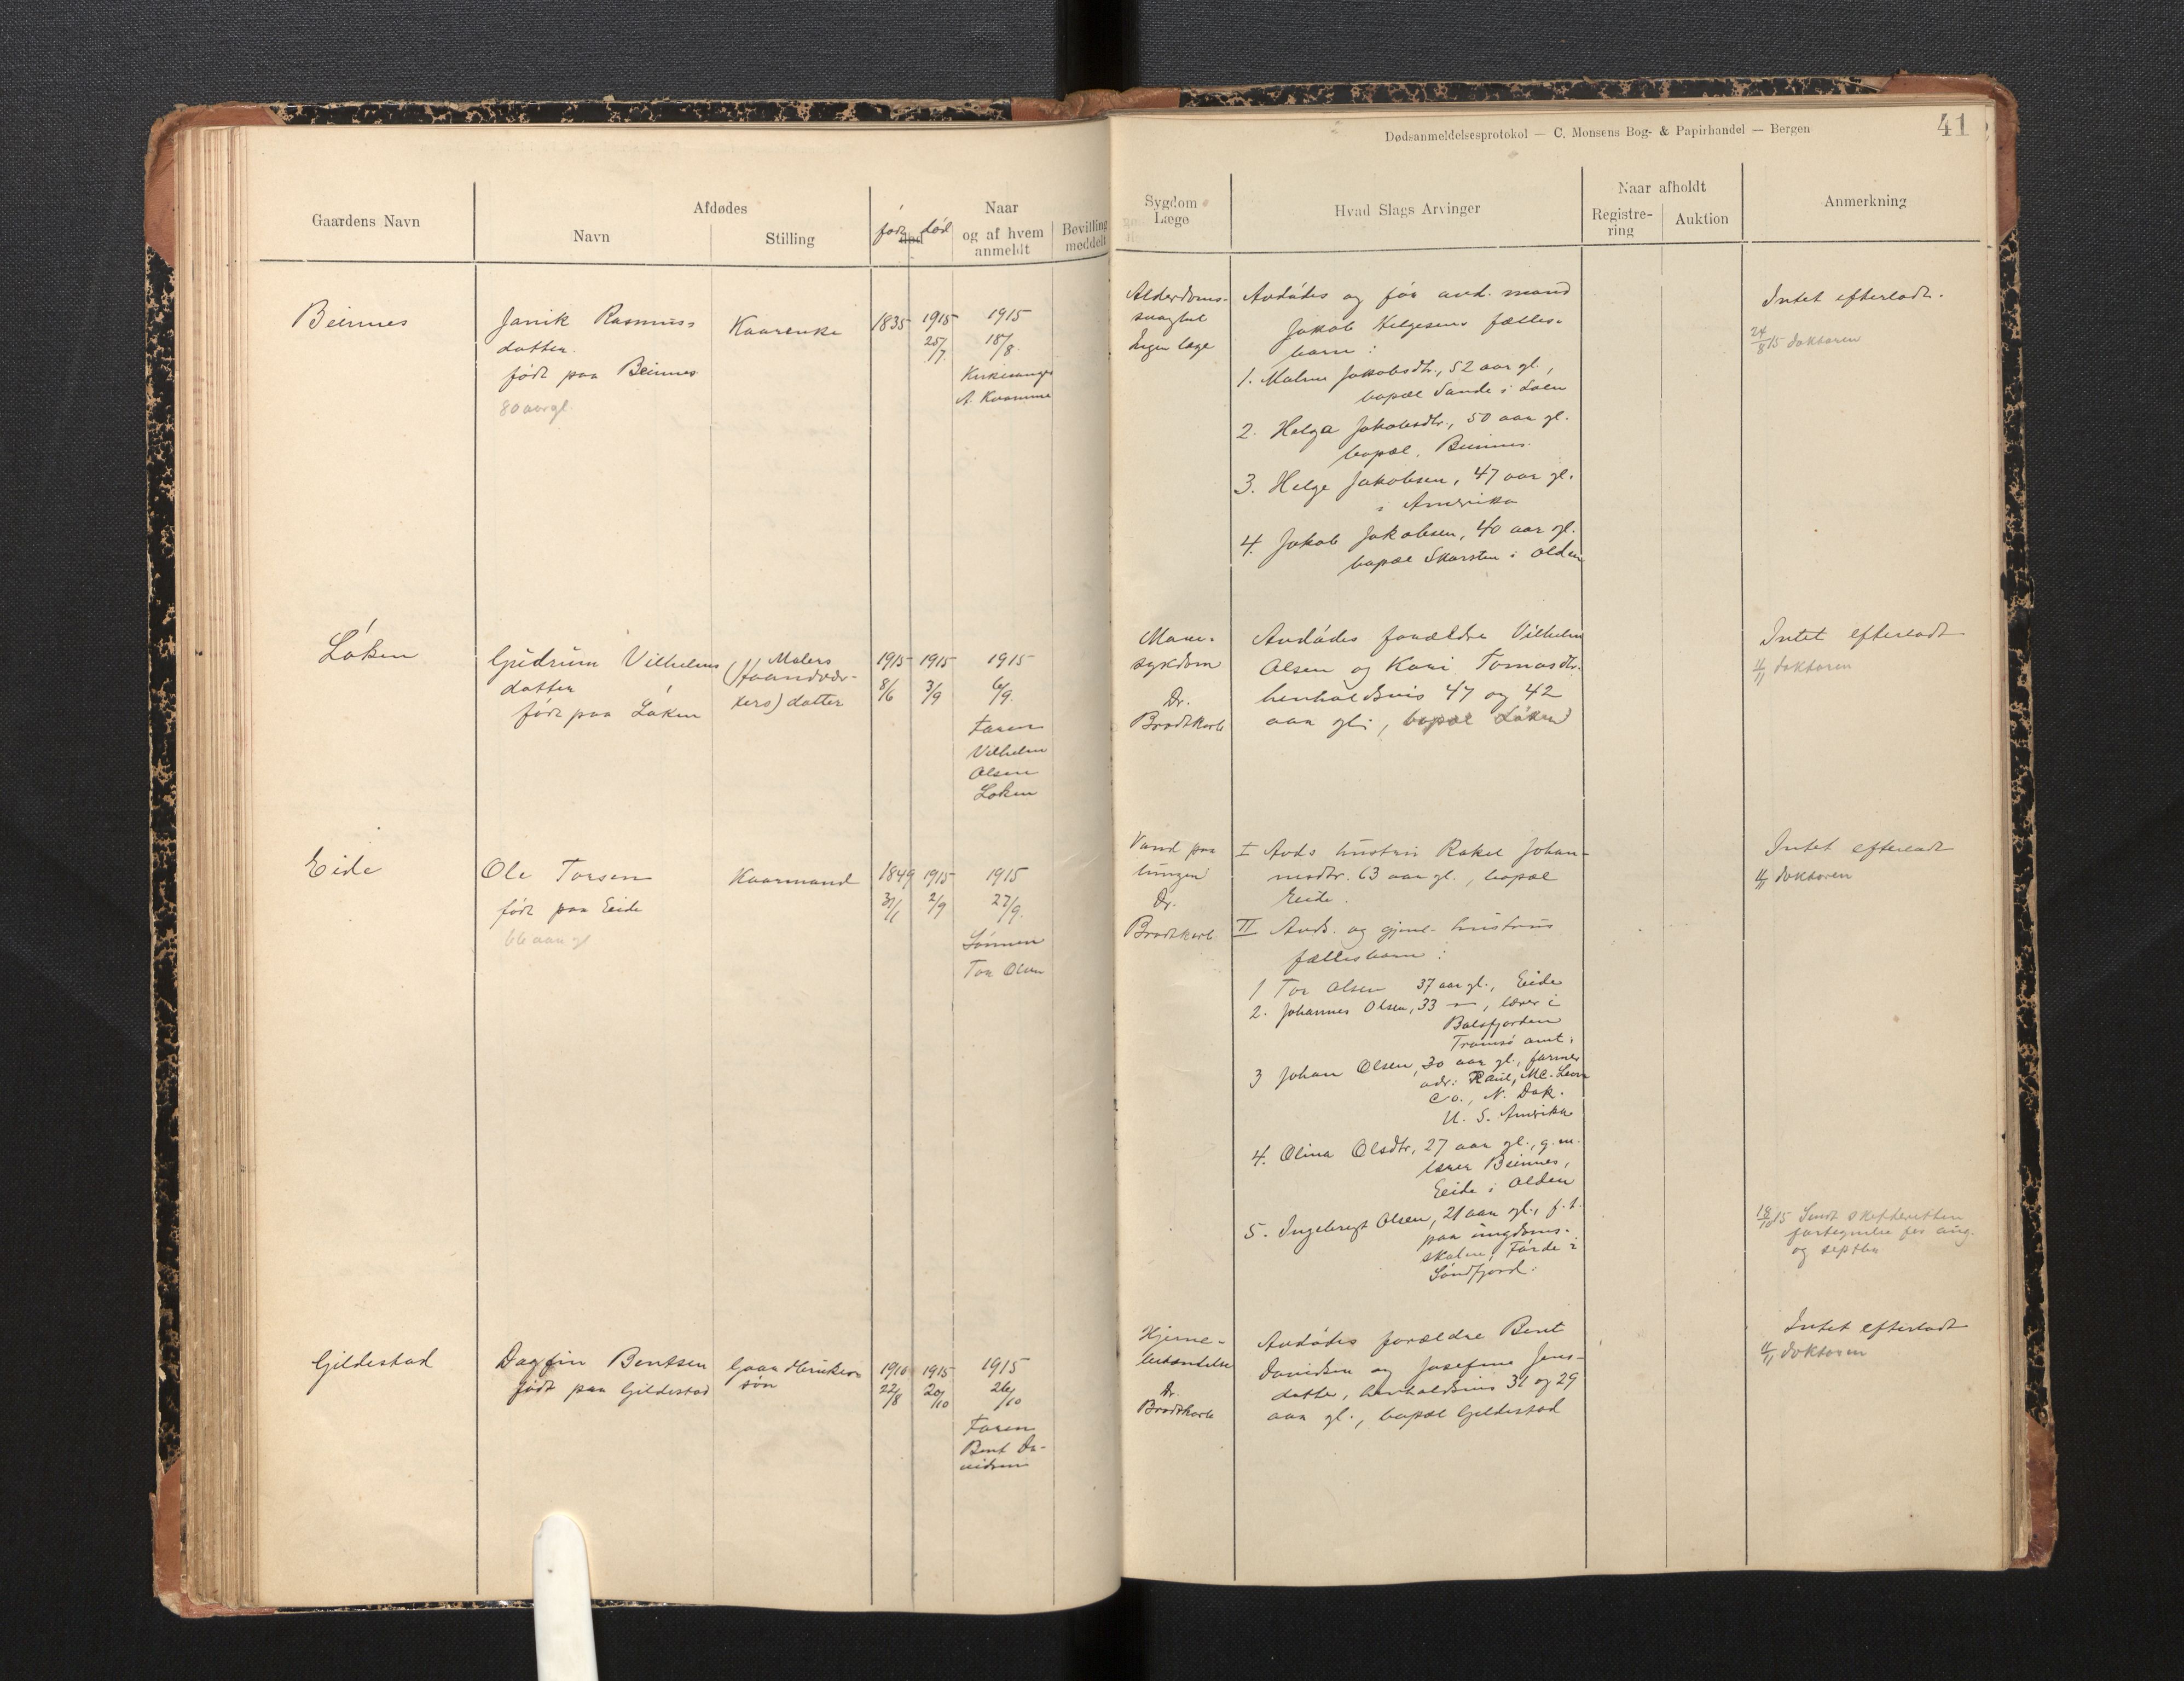 Dødsanmeldelsesprotokol — C. Monsens Bog- & Papirhandel — Bergen
41
Gaardens Navn
Afdødes
Navn
Stilling
født
død
Naar
og af hvem
anmeldt
Bevilling
meddelt
Sygdom
Læge
Hvad Slags Arvinger
Naar afholdt
Registre-
ring
Auktion
Anmerkning
Beinnes
Janik Rasmus-
datter.
født paa Beinnes
80 aar gl.
Kaarenke
1835
1915
25/7
1915
18/8
Kirkesanger
A. Kvamme
Alderdoms-
svaghet
Ingen læge
Avdødes og før avd. mand
Jakob Helgesens fælles-
barn:
1. Malene Jakobsdtr., 52 aar gl.,
bopæl Sande i Loen
2. Helga Jakobsdtr., 50 aar gl.
bopæl, Beinnes.
3. Helge Jakobsen, 47 aar gl.
i Amerika
4. Jakob Jakobsen, 40 aar gl.
bopæl Skarsten i Olden
Intet efterladt.
24/8 15 doktoren
Løken
Gudrun Vilhelms
datter
født paa Løken
Malers
(Haandvær-
kers) datter
1915
8/6
1915
3/9
1915
6/9.
Faren
Vilhelm
Olsen
Løken
Mave-
sygdom
Dr.
Bradtkorb
Avdødes forældre Vilhelm
Olsen og Kari Tomasdtr.
henholdsvis 47 og 42
aar gl., bopæl Løken
Intet efterladt
4/11 doktoren
Eide
Ole Torsen
født paa Eide
66 aar gl
Kaarmand
1849
31/1
1915
2/9
1915
27/9.
Sønnen
Tor Olsen
Vand paa
lungen
Dr.
Bradtkorb
I Avds hustru Rakel Johan-
nesdtr. 63 aar gl., bopæl
Eide.
II Avds. og gjenl. hustrus
fællesbarn:
1 Tor Olsen 37 aar gl., Eide
2. Johannes Olsen, 33 —, lærer i
Balsfjorden
Tromsø amt.
3 Johan Olsen, 30 aar gl., farmer
adr: Raub, Mc. Lean
Co., N. Dak.
U. S. Amerika
4. Olina Olsdtr, 27 aar gl., g. m.
lærer Beinnes,
Eide i Olden
5. Ingebrigt Olsen, 21 aar gl., f. t.
paa ungdoms-
skolen, Førde i
Søndfjord.
Intet efterladt
4/11 doktoren
18/10 15 Sendt skifteretten
fortegnelse for aug.
og septbr
Gildestad
Dagfin Bentsen
født paa Gildestad
Gaardbrukers
søn
1910
22/8
1915
20/10
1915
26/10
Faren
Bent Da-
vidsen
Hjerne-
betændelse
Dr.
Bradtkorb
Avdødes forældre Bent
Davidsen og Josefine Jens-
datter, henholdsvis 31 og 29
aar gl., bopæl Gildestad
Intet efterladt
4/11 doktoren